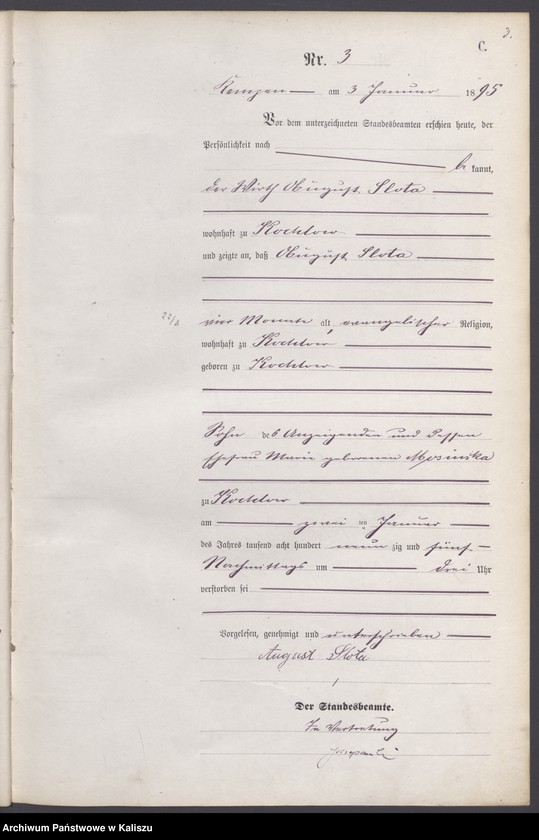 3.
C.
Nr. 3
Kempen am 3 Januar 1895
Vor dem unterzeichneten Standesbeamten erschien heute, der
Persönlichkeit nach
be kannt,
der Wirth August Slota
wohnhaft zu
und zeigte an, daß August Slota
vier Monate alt, evangelischer Religion,
wohnhaft zu
geboren zu
Sohn des Anzeigenden und dessen
Ehefrau Marie geborenen
zu
am zwei ten Januar
des Jahres tausend acht hundert neun zig und fünf
Nachmittags um drei Uhr
verstorben sei
Vorgelesen, genehmigt und unterschrieben
August Slota
Der Standesbeamte.
In Vertretung
Archiwum Państwowe w Kaliszu